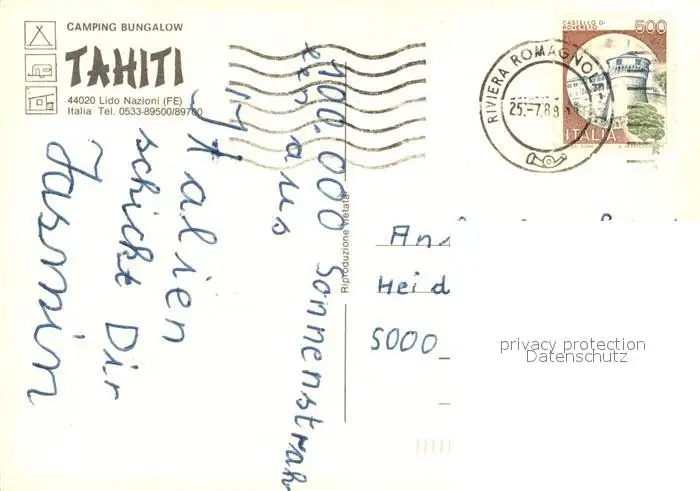 CAMPING BUNGALOW
TAHITI
44020 Lido Nazioni (FE)
Italia Tel. 0533-89500/89700
100.000 Sonnenstrah
len aus
Italien
schickt Dir
Jasmin
Riproduzione vietata
RIVIERA ROMAGNO
25.-7.88
CASTELLO DI
ROVERETO
500
ITALIA
An
Heid
5000
privacy protection
Datenschutz